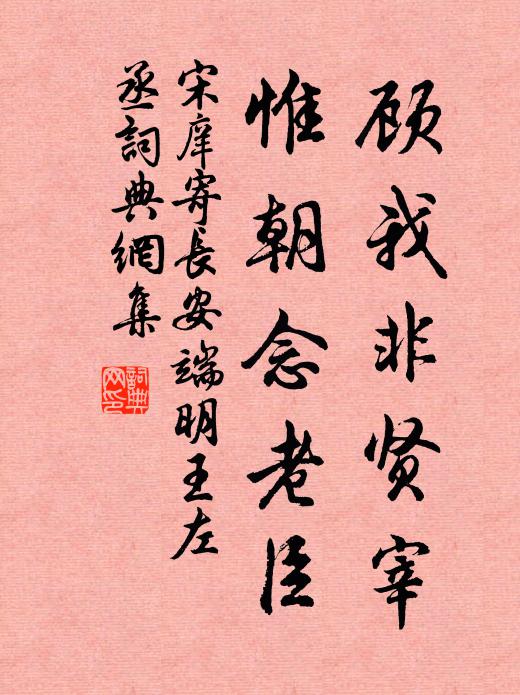 顾我非贤宰
惟朝念老臣
宋庠寄長安端明王左
丞詞典網集
詞典網印